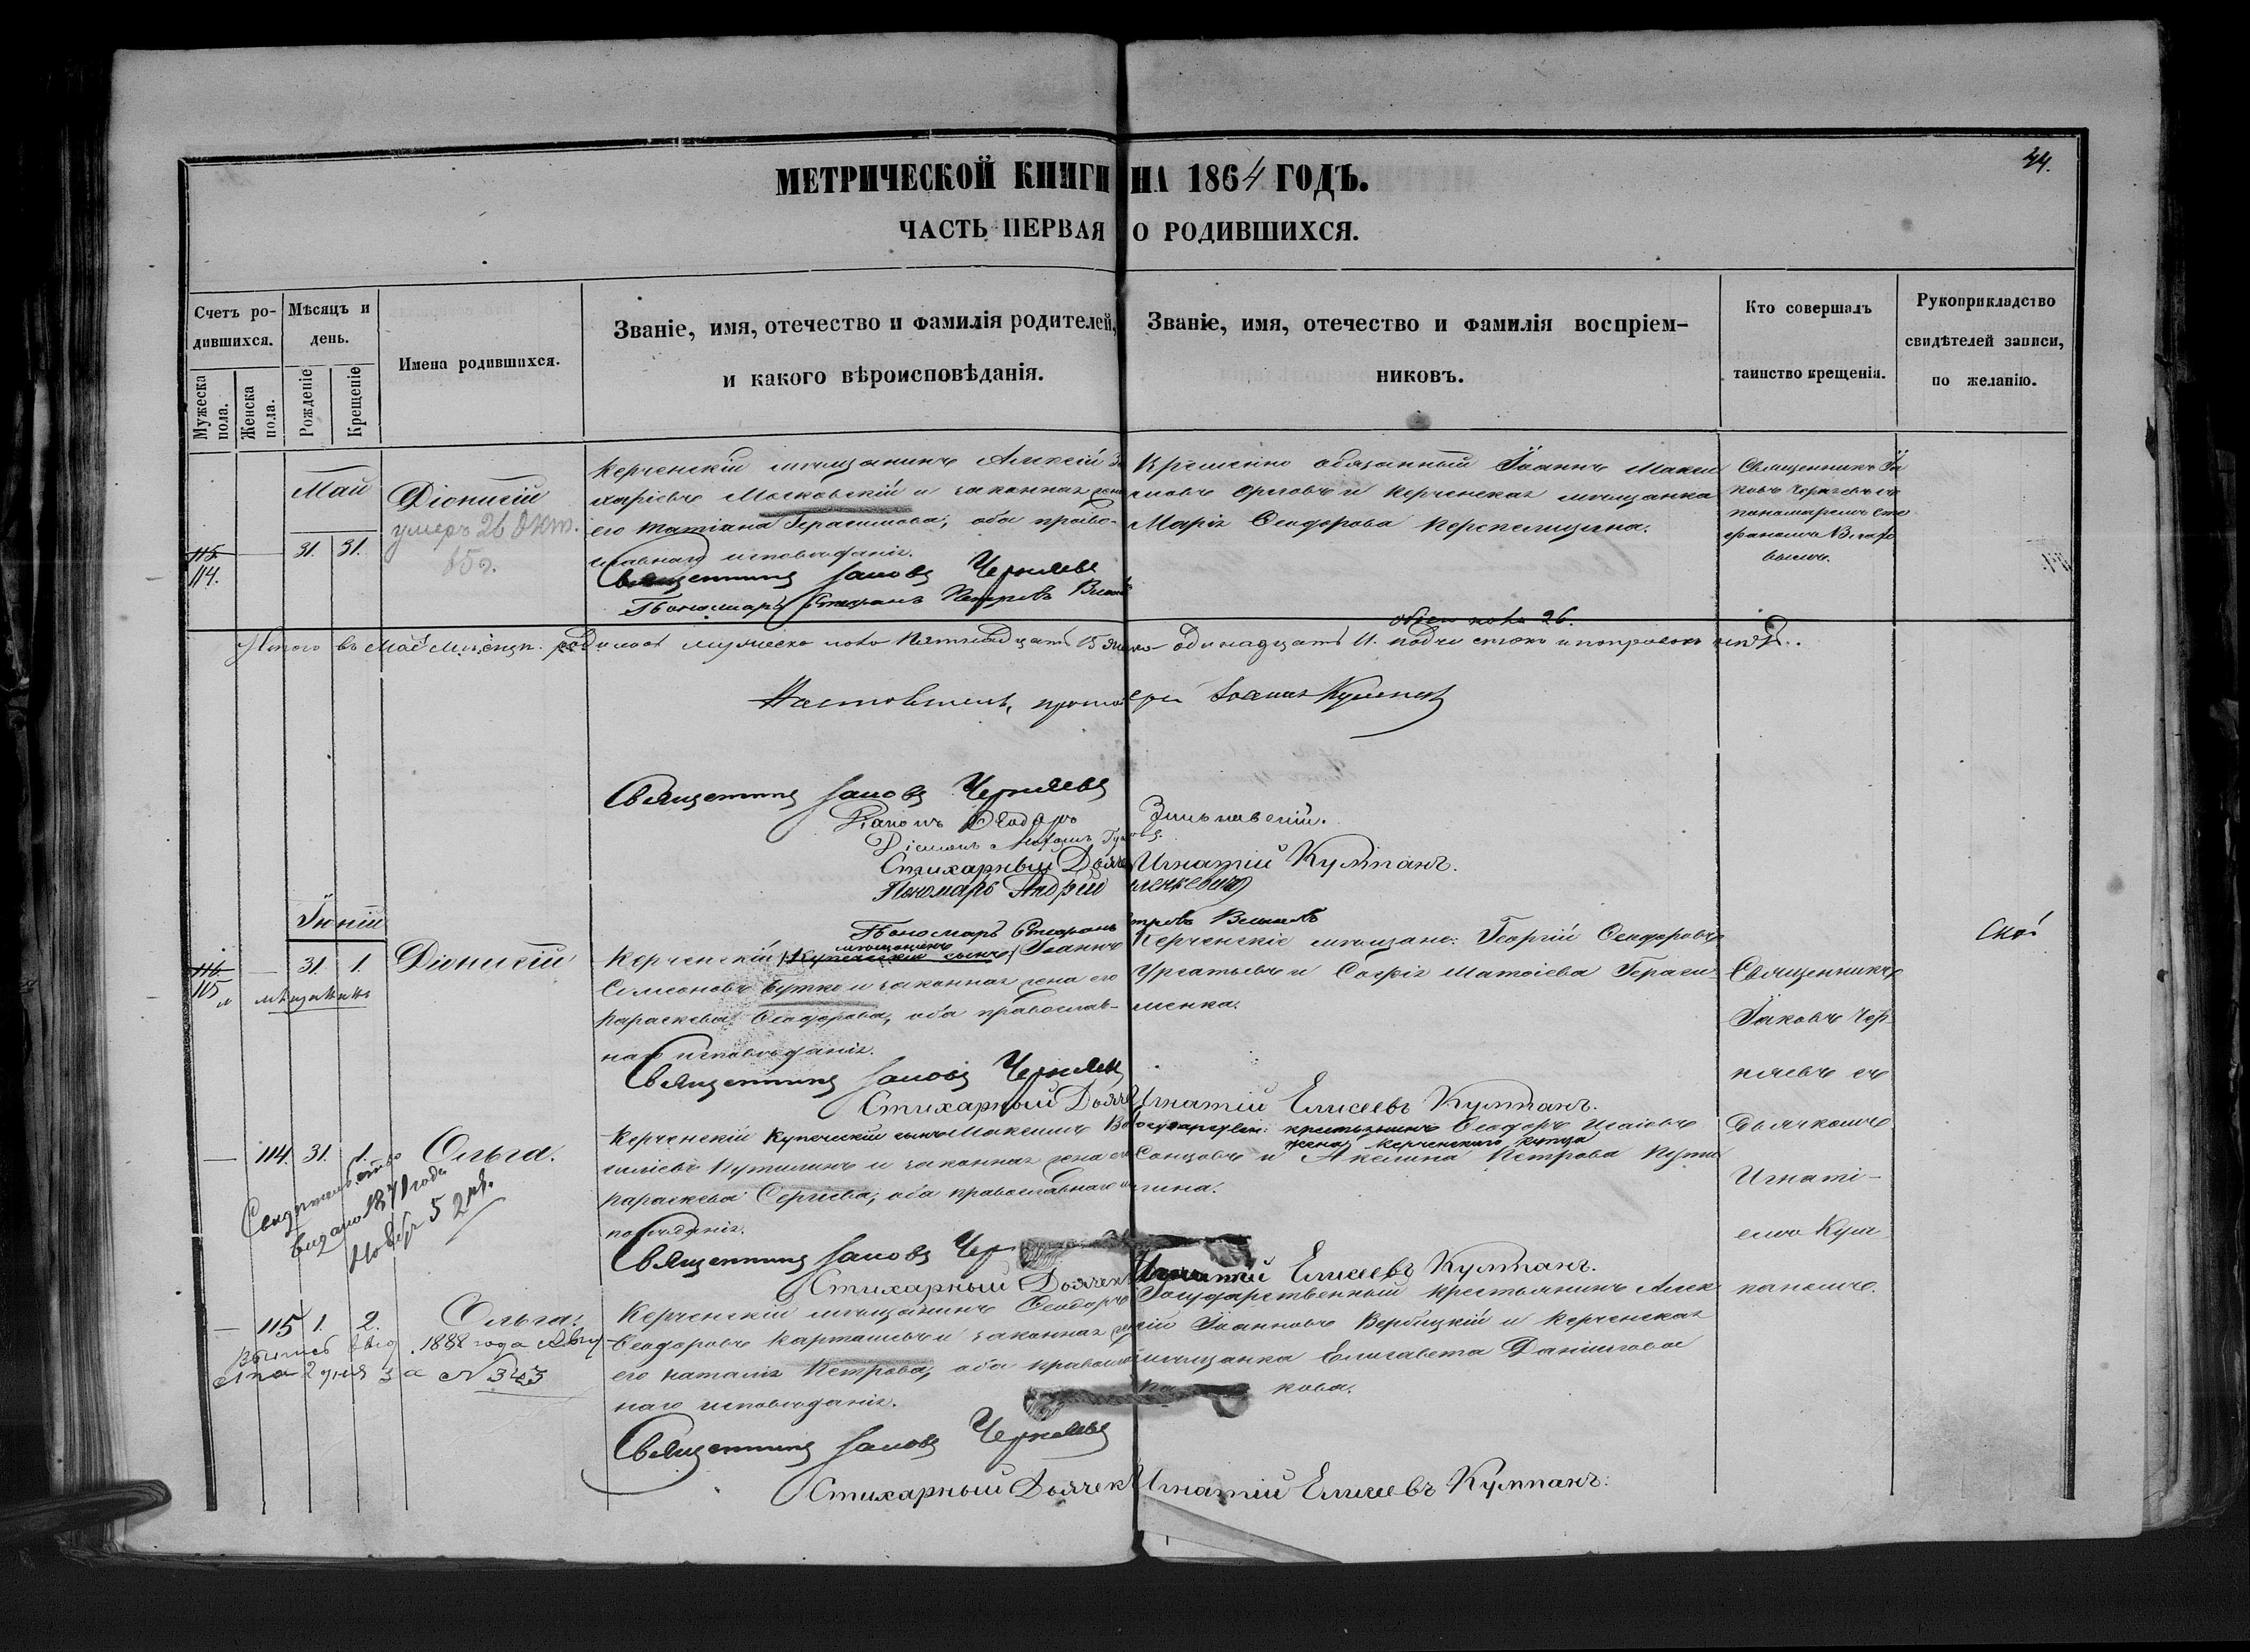 44.
МЕТРИЧЕСКОЙ КНИГИ НА 1864 ГОДЪ.
ЧАСТЬ ПЕРВАЯ О РОДИВШИХСЯ.
Счетъ ро-
дившихся.
Мужеска
пола.
Женска
пола.
Мѣсяцъ и
день.
Рожденіе
Крещеніе
Имена родившихся.
Званіе, имя, отечество и фамилія родителей,
и какого вѣроисповѣданія.
Званіе, имя, отечество и фамилія воспріем-
никовъ.
Кто совершалъ
таинство крещенія.
Рукоприкладство
свидѣтелей записи,
по желанію.
Май
115.
114.
31. 31.
Діонисій
умеръ 26 Окт.
Керченскій мѣщанинъ Алексій За
харіевъ Московскій и законная жена
его Татіана Герасимова, оба право-
славнаго исповѣданія.
Священникъ Іаковъ Черняевъ
Пономарь Стефанъ Петровъ
обязанный Іоаннъ Макси
мовъ Орловъ и Керченская мѣщанка
Марія Ѳеодорова Перепелицина.
Священникъ Іа
ковъ Черняевъ съ
пономаремъ Сте
фаномъ
Итого въ Маѣ мѣсяцѣ родилось мужеска пола пятнадцать 15 одинадцать 11.
обоего пола 26.
Настоятель, протоіерей Іоаннъ
Священникъ Іаковъ Черняевъ
Діаконъ Ѳеодоръ
Діаконъ
Стихарный Дьячекъ Игнатій Кулпанъ.
Пономарь Андрей
Пономарь Стефанъ Петровъ
Іюній
116.
115
31. 1.
мѣщанинъ
Діонисій
Керченскій купеческій сынъ Іоаннъ
мѣщанинъ
Симеоновъ Бутко и законная жена его
Параскева Ѳеодорова, оба православ-
наго исповѣданія.
Священникъ Іаковъ Черняевъ
Стихарный Дьячекъ Игнатій Елисеевъ Кулпанъ.
Керченскіе мѣщане: Георгій Ѳеодоровъ
и Софія Матѳіева Гераси-
менка.
Священникъ
Іаковъ Чер-
няевъ съ
дьячкомъ
Игнаті-
емъ Кул
паномъ.
114. 31. 1.
Ольга.
Свидѣтельство
выдано 1871 года
Ноября 5
Керченскій купеческій сынъ Максимъ Ва
силіевъ Путилинъ и законная жена его
Параскева Сергіева, оба православнаго ис
повѣданія.
Священникъ Іаковъ Чер
Стихарный Дьячекъ Игнатій Елисеевъ Кулпанъ.
Государствен: крестьянинъ Ѳеодоръ Исаіевъ
Сонцовъ и жена Керченскаго купца
Акелина Петрова Пути
лина.
115 1. 2.
Ольга.
Выпись выд. 1888 года Авгу
ста 2 дня за № 323
Керченскій мѣщанинъ Ѳеодоръ
Ѳеодоровъ Карташевъ и законная жена
его Наталія Петрова, оба православ
наго исповѣданія.
Священникъ Іаковъ Черняевъ
Стихарный Дьячекъ Игнатій Елисеевъ Кулпанъ.
Государственный крестьянинъ Алек
сій Іоанновъ Вербицкій и Керченская
мѣщанка Елисавета Даниилова
кова.